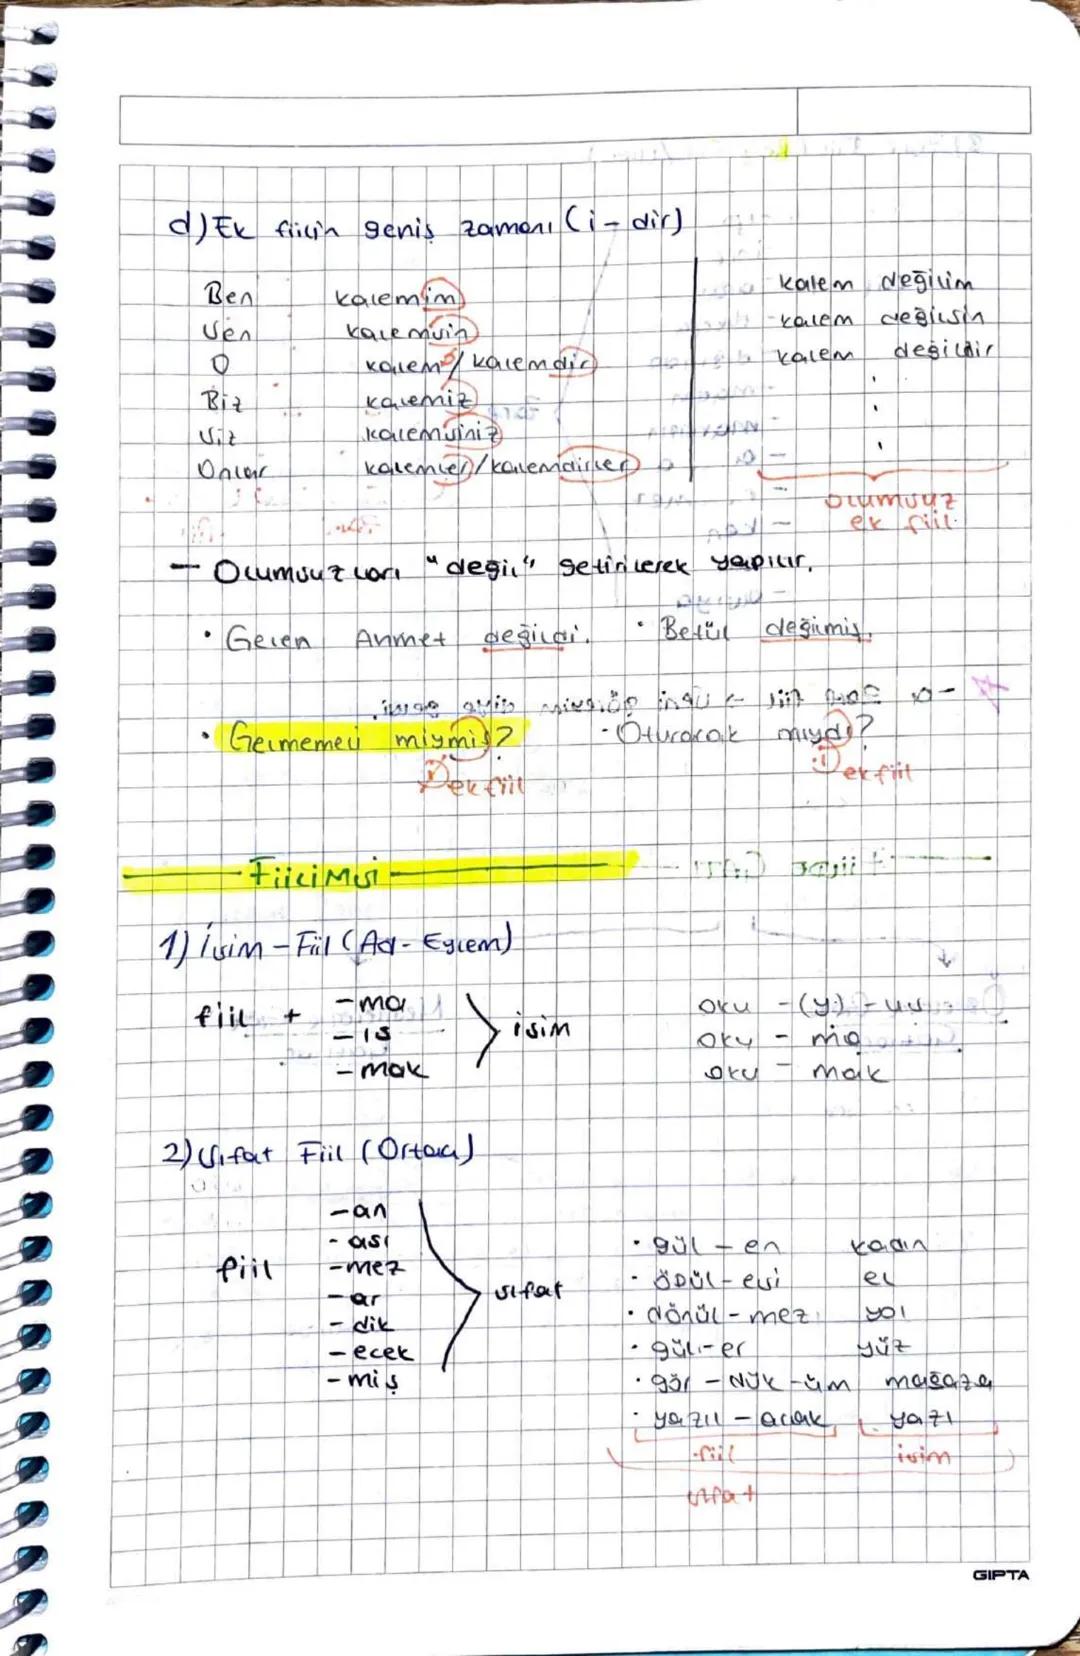 d) Ek fiilin geniş zamanı (i-dir)
Ben kalemim
Sen kalemsin
O kalem / kalemdir
Biz kalemiz
Siz kalemsiniz
Onlar kalemler / kalemdirler
kalem değilim
kalem değilsin
kalem değildir
olumsuz
ek fiil
- Olumsuzları "değil" getirilerek yapılır.
• Gelen Ahmet değildi. • Betül değilmiş.
• Gelmemeli miymiş? - Oturacak mıydı?
ek fiil ek fiil
Fiilimsi
1) İsim - Fiil (Ad - Eylem)
fiil + -ma
-ış
-mak
isim
oku -(y) - uş
oku - ma
oku - mak
2) Sıfat Fiil (Ortaç)
fiil
-an
-ası
-mez
-ar
-dik
-ecek
-miş
sıfat
• gül - en kadın
• öpül - esi el
• dönül - mez yol
• gül - er yüz
• gör - dük - üm mağaza
• yazıl - acak yazı
fiil isim
sıfat
GIPTA